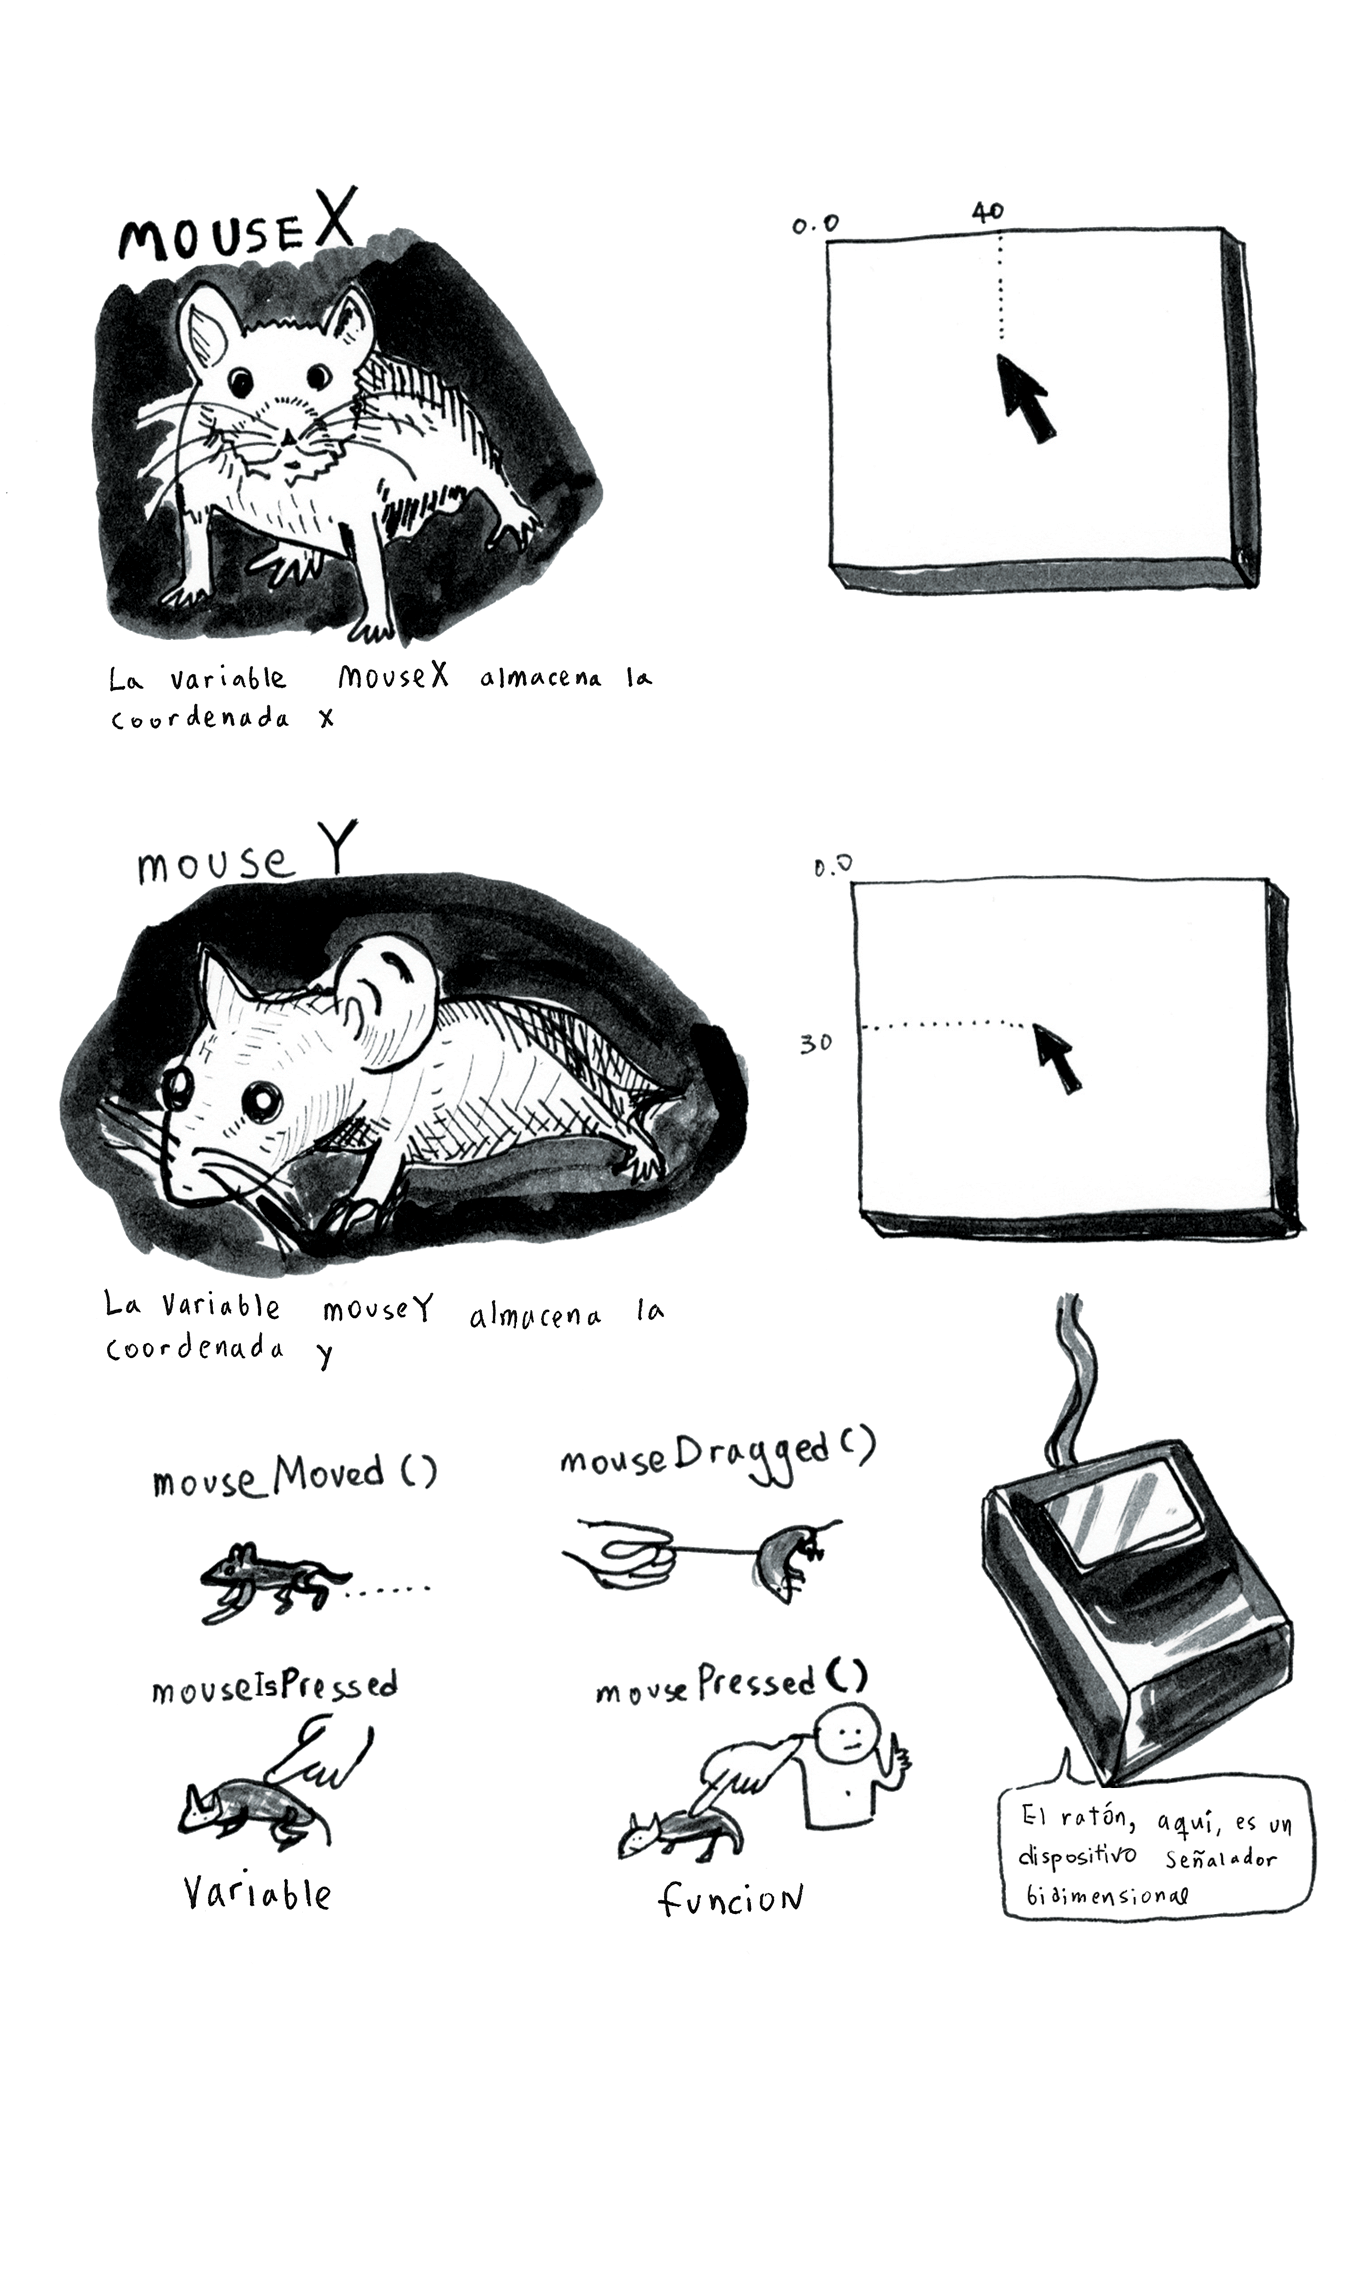 mouseX
0.0
40
La variable mouseX almacena la
coordenada x
mouse Y
0.0
30
La variable mouseY almacena la
coordenada y
mouseMoved()
mouseDragged()
mouseIsPressed
mousePressed()
Variable
funcion
El ratón, aquí, es un
dispositivo señalador
bidimensional